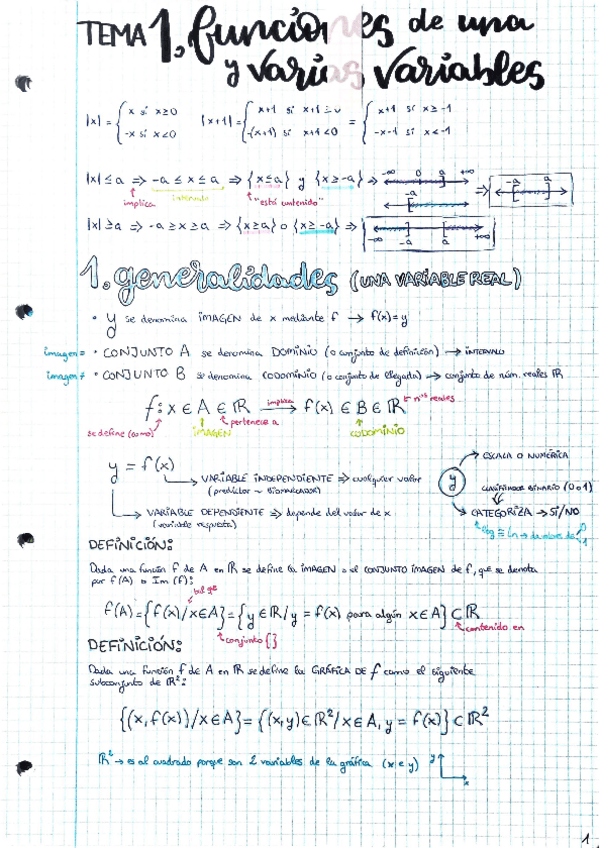 TEMA 1. funciones de una
y varias variables
|x| = { x si x≥0 |x+1| = { x+1 si x+1≥0 = { x+1 si x≥-1
-x si x<0 -(x+1) si x+1<0 -x-1 si x<-1
|x| ≤ a ⇒ -a ≤ x ≤ a ⇒ {x≤a} y {x≥-a} ⇒ -∞ 0 a +∞ ⇒ -a a
implica intervalo "está contenido" -a
|x| ≥ a ⇒ -a ≥ x ≥ a ⇒ {x≥a} o {x≥-a} ⇒ -∞ -a a +∞
1. generalidades (UNA VARIABLE REAL)
• y se denomina IMAGEN de x mediante f → f(x)=y
imagen= • CONJUNTO A se denomina DOMINIO (o conjunto de definición) → INTERVALO
imagen≠ • CONJUNTO B se denomina CODOMINIO (o conjunto de llegada) → conjunto de núm. reales ℝ
f: x ∈ A ∈ ℝ implica → f(x) ∈ B ∈ ℝ nºs reales
se define (como) IMAGEN pertenece a CODOMINIO
y = f(x)
→ VARIABLE INDEPENDIENTE ⇒ cualquier valor
(predictor ~ BIOMARCADOR)
→ VARIABLE DEPENDIENTE ⇒ depende del valor de x
(variable respuesta)
y → ESCALA O NUMÉRICA
CLASIFICADOR BINARIO (0 o 1)
→ CATEGORIZA → SI/NO
DEFINICIÓN:
Dada una función f de A en ℝ se define la IMAGEN o el CONJUNTO IMAGEN de f, que se denota
por f(A) o Im(f):
tal qe
f(A) = {f(x)/x∈A} = {y ∈ ℝ / y = f(x) para algún x∈A} ⊂ ℝ
conjunto {} contenido en
DEFINICIÓN:
Dada una función f de A en ℝ se define la GRÁFICA DE f como el siguiente
subconjunto de ℝ²:
{(x, f(x))/x∈A} = {(x,y)∈ℝ²/x∈A, y = f(x)} ⊂ ℝ²
ℝ² → es al cuadrado porque son 2 variables de la gráfica (x e y) y x
1